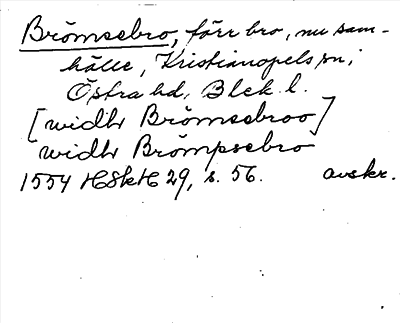 Brömsebro, förr bro, nu sam-
hälle, Kristianopels sn,
Östra hd, Blek. l.
[widhr Brömsebroo]
widhr Brömpsebro
1554 HSkH 29, s. 56. avskr.